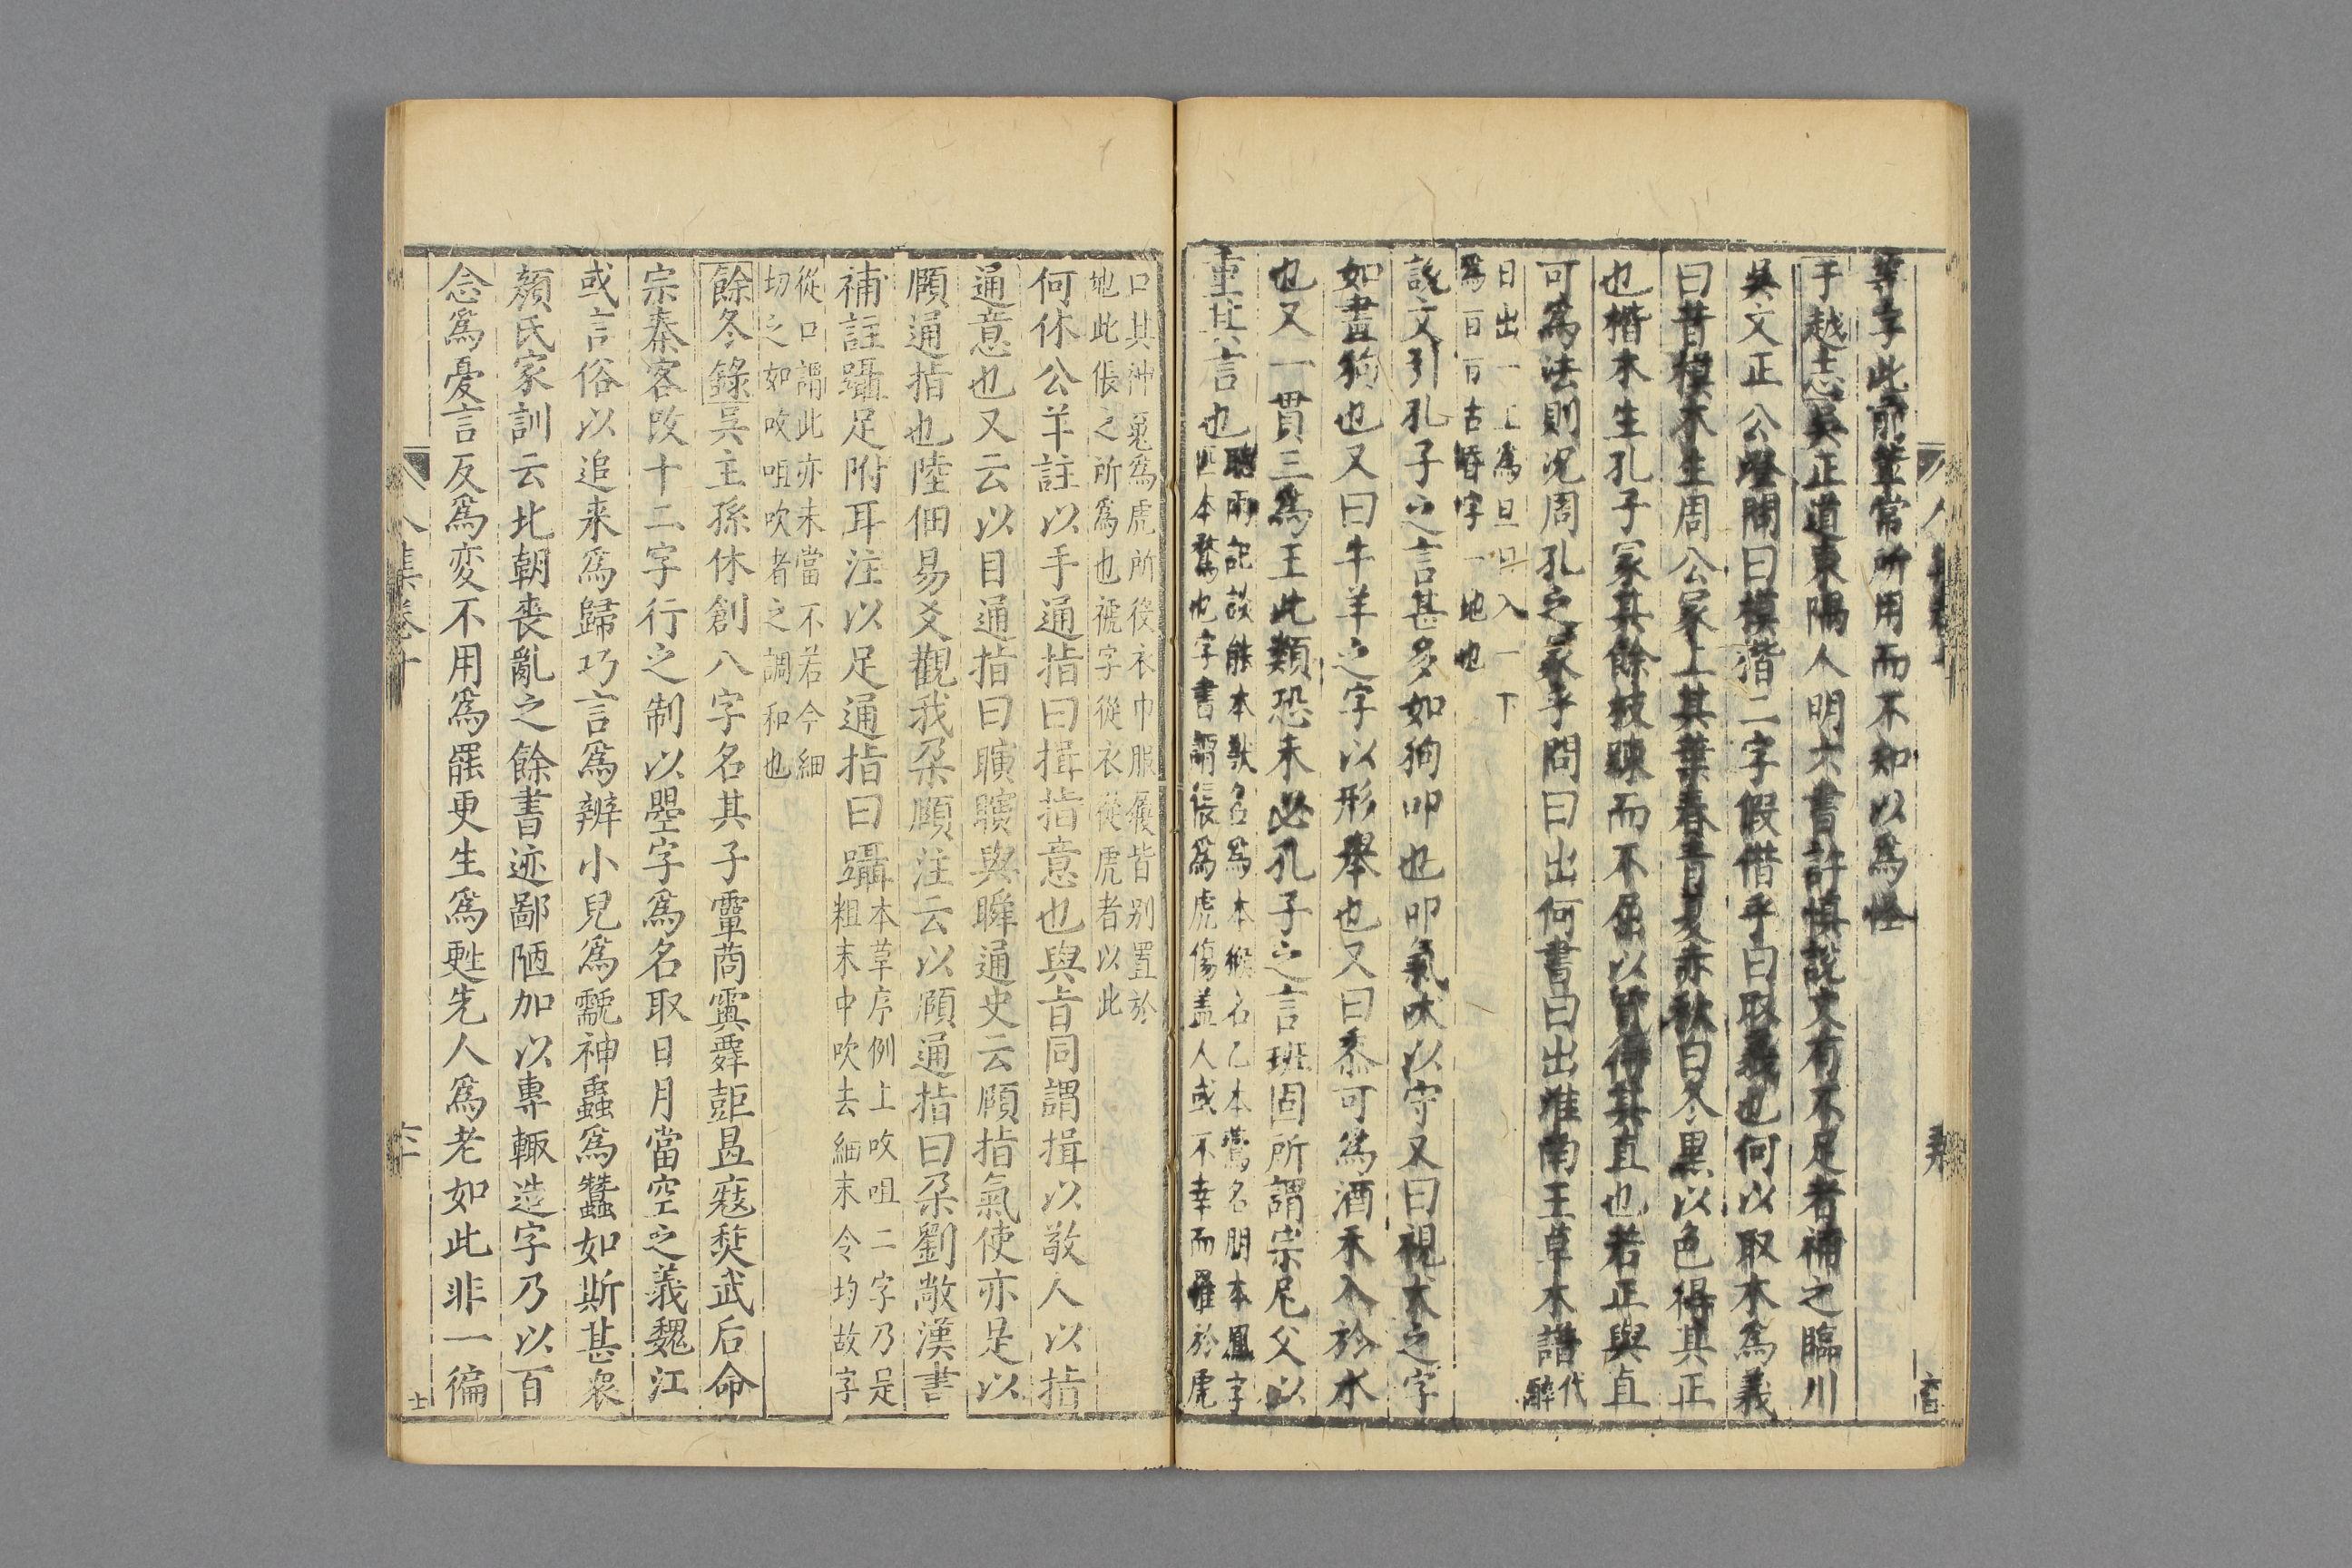 等字此前輩常所用而不知以爲怪
于越志吳正道東隅人明六書許慎說文有不足者補之臨川
吳文正公燈問曰模楷二字假借乎曰取義也何以取木爲義
曰昔模木生周公冢上其葉春青夏赤秋白冬黒以色得其正
也楷木生孔子冢其餘枝踈而不屈以質得其直也若正與直
可爲法則況周孔之冢乎問曰出何書曰出淮南王草木譜代醉
日出一上爲旦日入一下
爲百百古㫪字一地也
說文引孔子之言甚多如狗叩也叩氣吠以守又曰視犬之字
如畫狗也又曰牛羊之字以形舉也又曰黍可爲酒禾入於水
也又一貫三爲王此類恐未必孔子之言班固所謂崇尼父以
重其言也聽雨記談能本獸名爲本猴名乙本鷰名朋本鳳字
匹本鶩也字書謂倀爲虎傷盖人或不幸而罹於虎
口其神䰟爲虎所役衣巾服履皆別置於
地此倀之所爲也褫字從衣從虎者以此
何休公羊註以手通指曰揖指意也與旨同謂揖以敬人以指
通意也又云以目通指曰瞚瞚與瞬通史云頤指氣使亦足以
頤通指也陸佃易爻觀我朶頤注云以頤通指曰朶劉敞漢書
補註躡足附耳注以足通指曰躡本草序例上㕮咀二字乃是
粗末中吹去細末令均故字
從口謂此亦未當不若今細
切之如㕮咀吹者之調和也
餘冬錄吳主孫休創八字名其子𩅦𦯶𩃙𦫴壾昷寇㷂武后命
宗秦客改十二字行之制以曌字爲名取日月當空之義魏江
或言俗以追来爲歸巧言爲辨小兒爲䨲神蟲爲蠶如斯甚衆
顏氏家訓云北朝喪亂之餘書迹鄙陋加以專輒造字乃以百
念爲憂言反爲変不用爲罷更生爲甦先人爲老如此非一徧